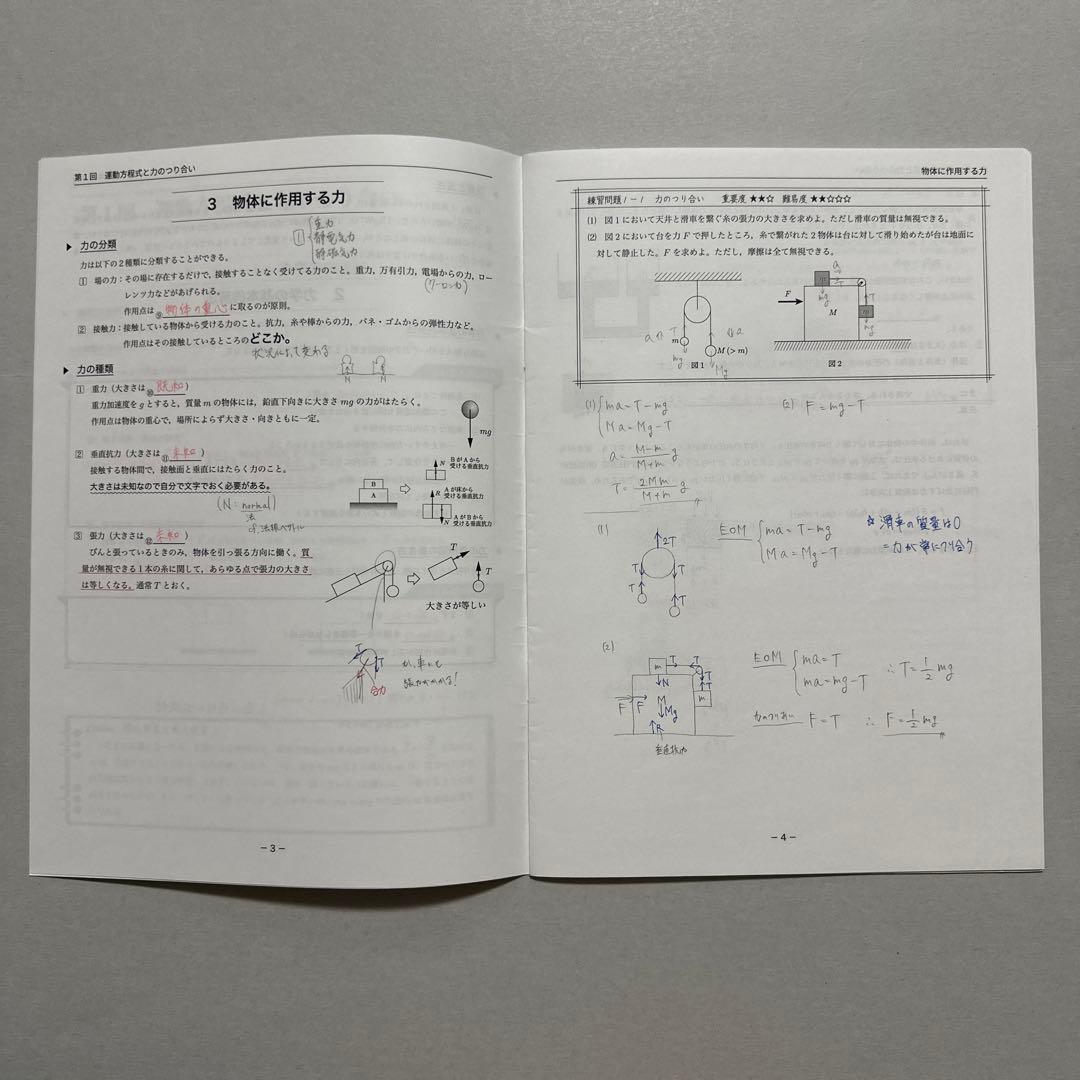 第1回 運動方程式と力のつり合い
3 物体に作用する力
① 重力
静電気力
静磁気力
▶ 力の分類
力は以下の2種類に分類することができる。
① 場の力：その場に存在するだけで，接触することなく受けてる力のこと。重力，万有引力，電場からの力，ロー
(クーロン力)
レンツ力などがあげられる。
作用点は⑨物体の重心に取るのが原則。
② 接触力：接触している物体から受ける力のこと。抗力，糸や棒からの力，バネ・ゴムからの弾性力など。
作用点はその接触しているところのどこか。
状況によって変わる
N N
▶ 力の種類
① 重力（大きさは⑩既知）
重力加速度をgとすると，質量mの物体には，鉛直下向きに大きさmgの力がはたらく。
作用点は物体の重心で，場所によらず大きさ・向きともに一定。
mg
② 垂直抗力（大きさは⑪未知）
接触する物体間で，接触面と垂直にはたらく力のこと。
大きさは未知なので自分で文字でおく必要がある。
(N：normal)
法
cf. 法線ベクトル
B
A
N
BがAから
受ける垂直抗力
R
Aが床から
受ける垂直抗力
N
AがBから
受ける垂直抗力
③ 張力（大きさは⑫未知）
ぴんと張っているときのみ，物体を引っ張る方向に働く。質
量が無視できる1本の糸に関して，あらゆる点で張力の大きさ
は等しくなる。通常Tとおく。
T
T
大きさが等しい
T
T
合力
かっ車にも
張力がかかる！
－3－
物体に作用する力
練習問題1－1 力のつり合い 重要度 ★★☆ 難易度 ★★☆☆☆
(1) 図1において天井と滑車を繋ぐ糸の張力の大きさを求めよ。ただし滑車の質量は無視できる。
(2) 図2において台を力Fで押したところ，糸で繋がれた2物体は台に対して滑り始めたが台は地面に
対して静止した。Fを求めよ。ただし，摩擦は全て無視できる。
a T
m
mg
図1
a
M(>m)
Mg
F
m
a
T
mg
M
T
m
mg
図2
(1) ma=T-mg
Ma=Mg-T
a= M-m/M+m g
T= 2Mm/M+m g
(2) F=mg-T
(1)
2T
T T
T T
EOM ma=T-mg
Ma=Mg-T
☆滑車の質量は0
=力が常につり合う
(2)
m T T
N
T
T
m
F F
M
Mg
R
垂直抗力
EOM ma=T
ma=mg-T
∴T=1/2 mg
力のつりあい F=T ∴ F=1/2 mg
－4－